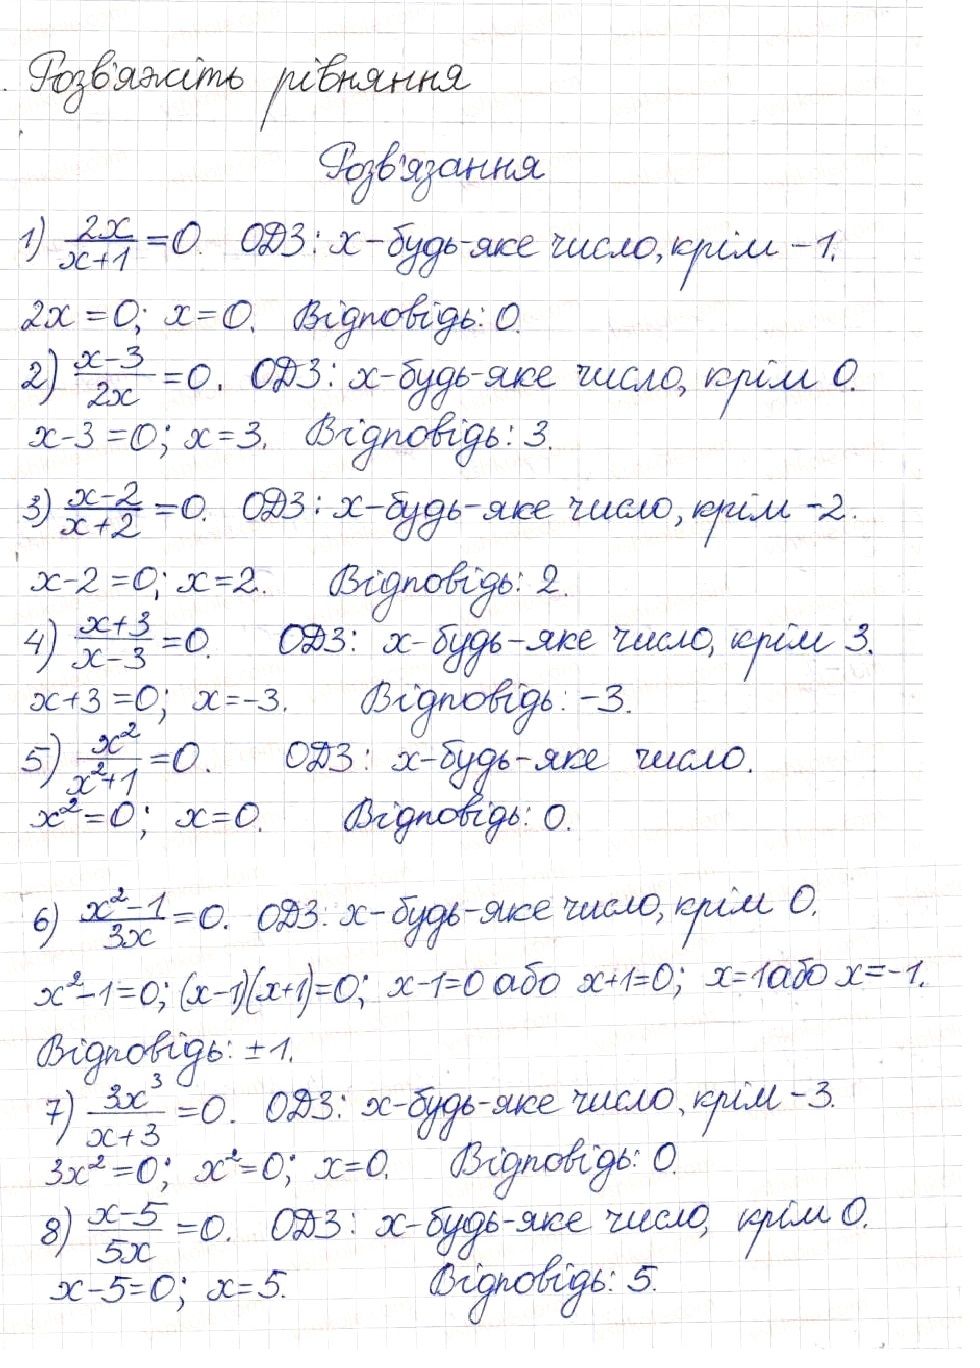 Розв'яжіть рівняння
Розв'язання
1) 2x/(x+1) = 0. ОДЗ: x - будь-яке число, крім -1.
2x = 0; x = 0. Відповідь: 0.
2) (x-3)/2x = 0. ОДЗ: x - будь-яке число, крім 0.
x-3 = 0; x = 3. Відповідь: 3.
3) (x-2)/(x+2) = 0. ОДЗ: x - будь-яке число, крім -2.
x-2 = 0; x = 2. Відповідь: 2.
4) (x+3)/(x-3) = 0. ОДЗ: x - будь-яке число, крім 3.
x+3 = 0; x = -3. Відповідь: -3.
5) x²/(x²+1) = 0. ОДЗ: x - будь-яке число.
x² = 0; x = 0. Відповідь: 0.
6) (x²-1)/3x = 0. ОДЗ: x - будь-яке число, крім 0.
x²-1=0; (x-1)(x+1)=0; x-1=0 або x+1=0; x=1 або x=-1.
Відповідь: ±1.
7) 3x³/(x+3) = 0. ОДЗ: x - будь-яке число, крім -3.
3x² = 0; x² = 0; x = 0. Відповідь: 0.
8) (x-5)/5x = 0. ОДЗ: x - будь-яке число, крім 0.
x-5=0; x = 5. Відповідь: 5.